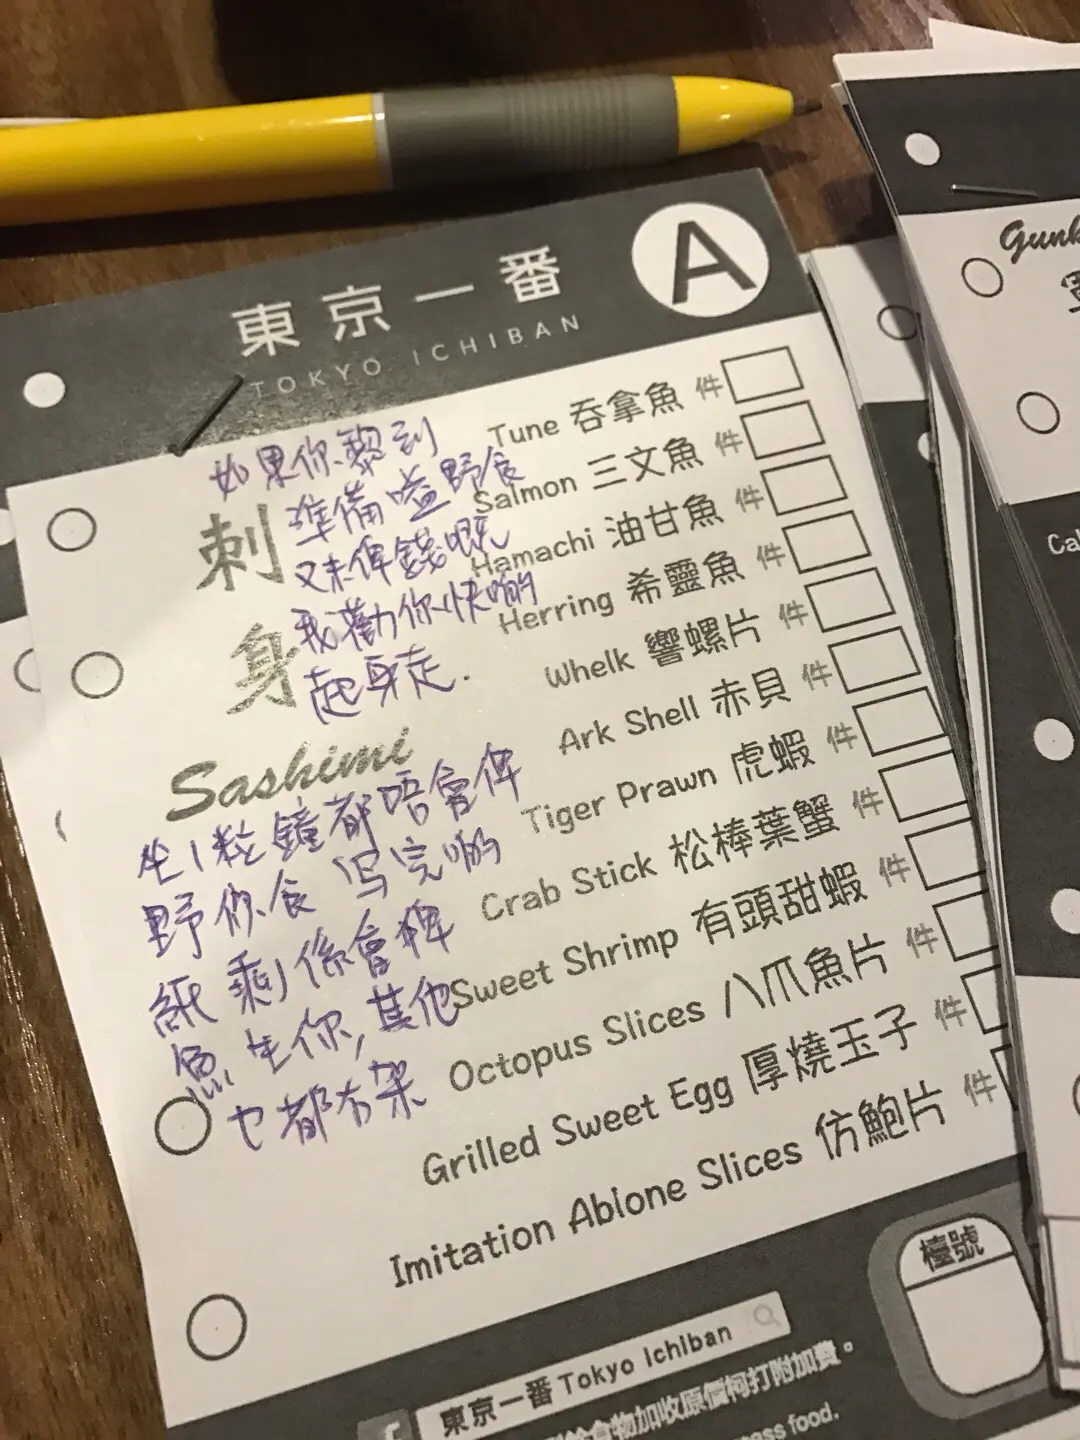 A
東京一番
TOKYO ICHIBAN
如果你黎到
準備嗌野食
又未俾錢嘅
我勸你快啲
起身走.
刺身
Sashimi
坐1粒鐘都唔會俾
野你食 写完啲
紙 剩係會俾
魚生你, 其他
乜都冇架
Tune 吞拿魚 件
Salmon 三文魚 件
Hamachi 油甘魚 件
Herring 希靈魚 件
Whelk 響螺片 件
Ark Shell 赤貝 件
Tiger Prawn 虎蝦 件
Crab Stick 松棒葉蟹 件
Sweet Shrimp 有頭甜蝦 件
Octopus Slices 八爪魚片 件
Grilled Sweet Egg 厚燒玉子 件
Imitation Ablone Slices 仿鮑片 件
檯號
東京一番 Tokyo Ichiban
食物加收原價柯打附加費。
food.